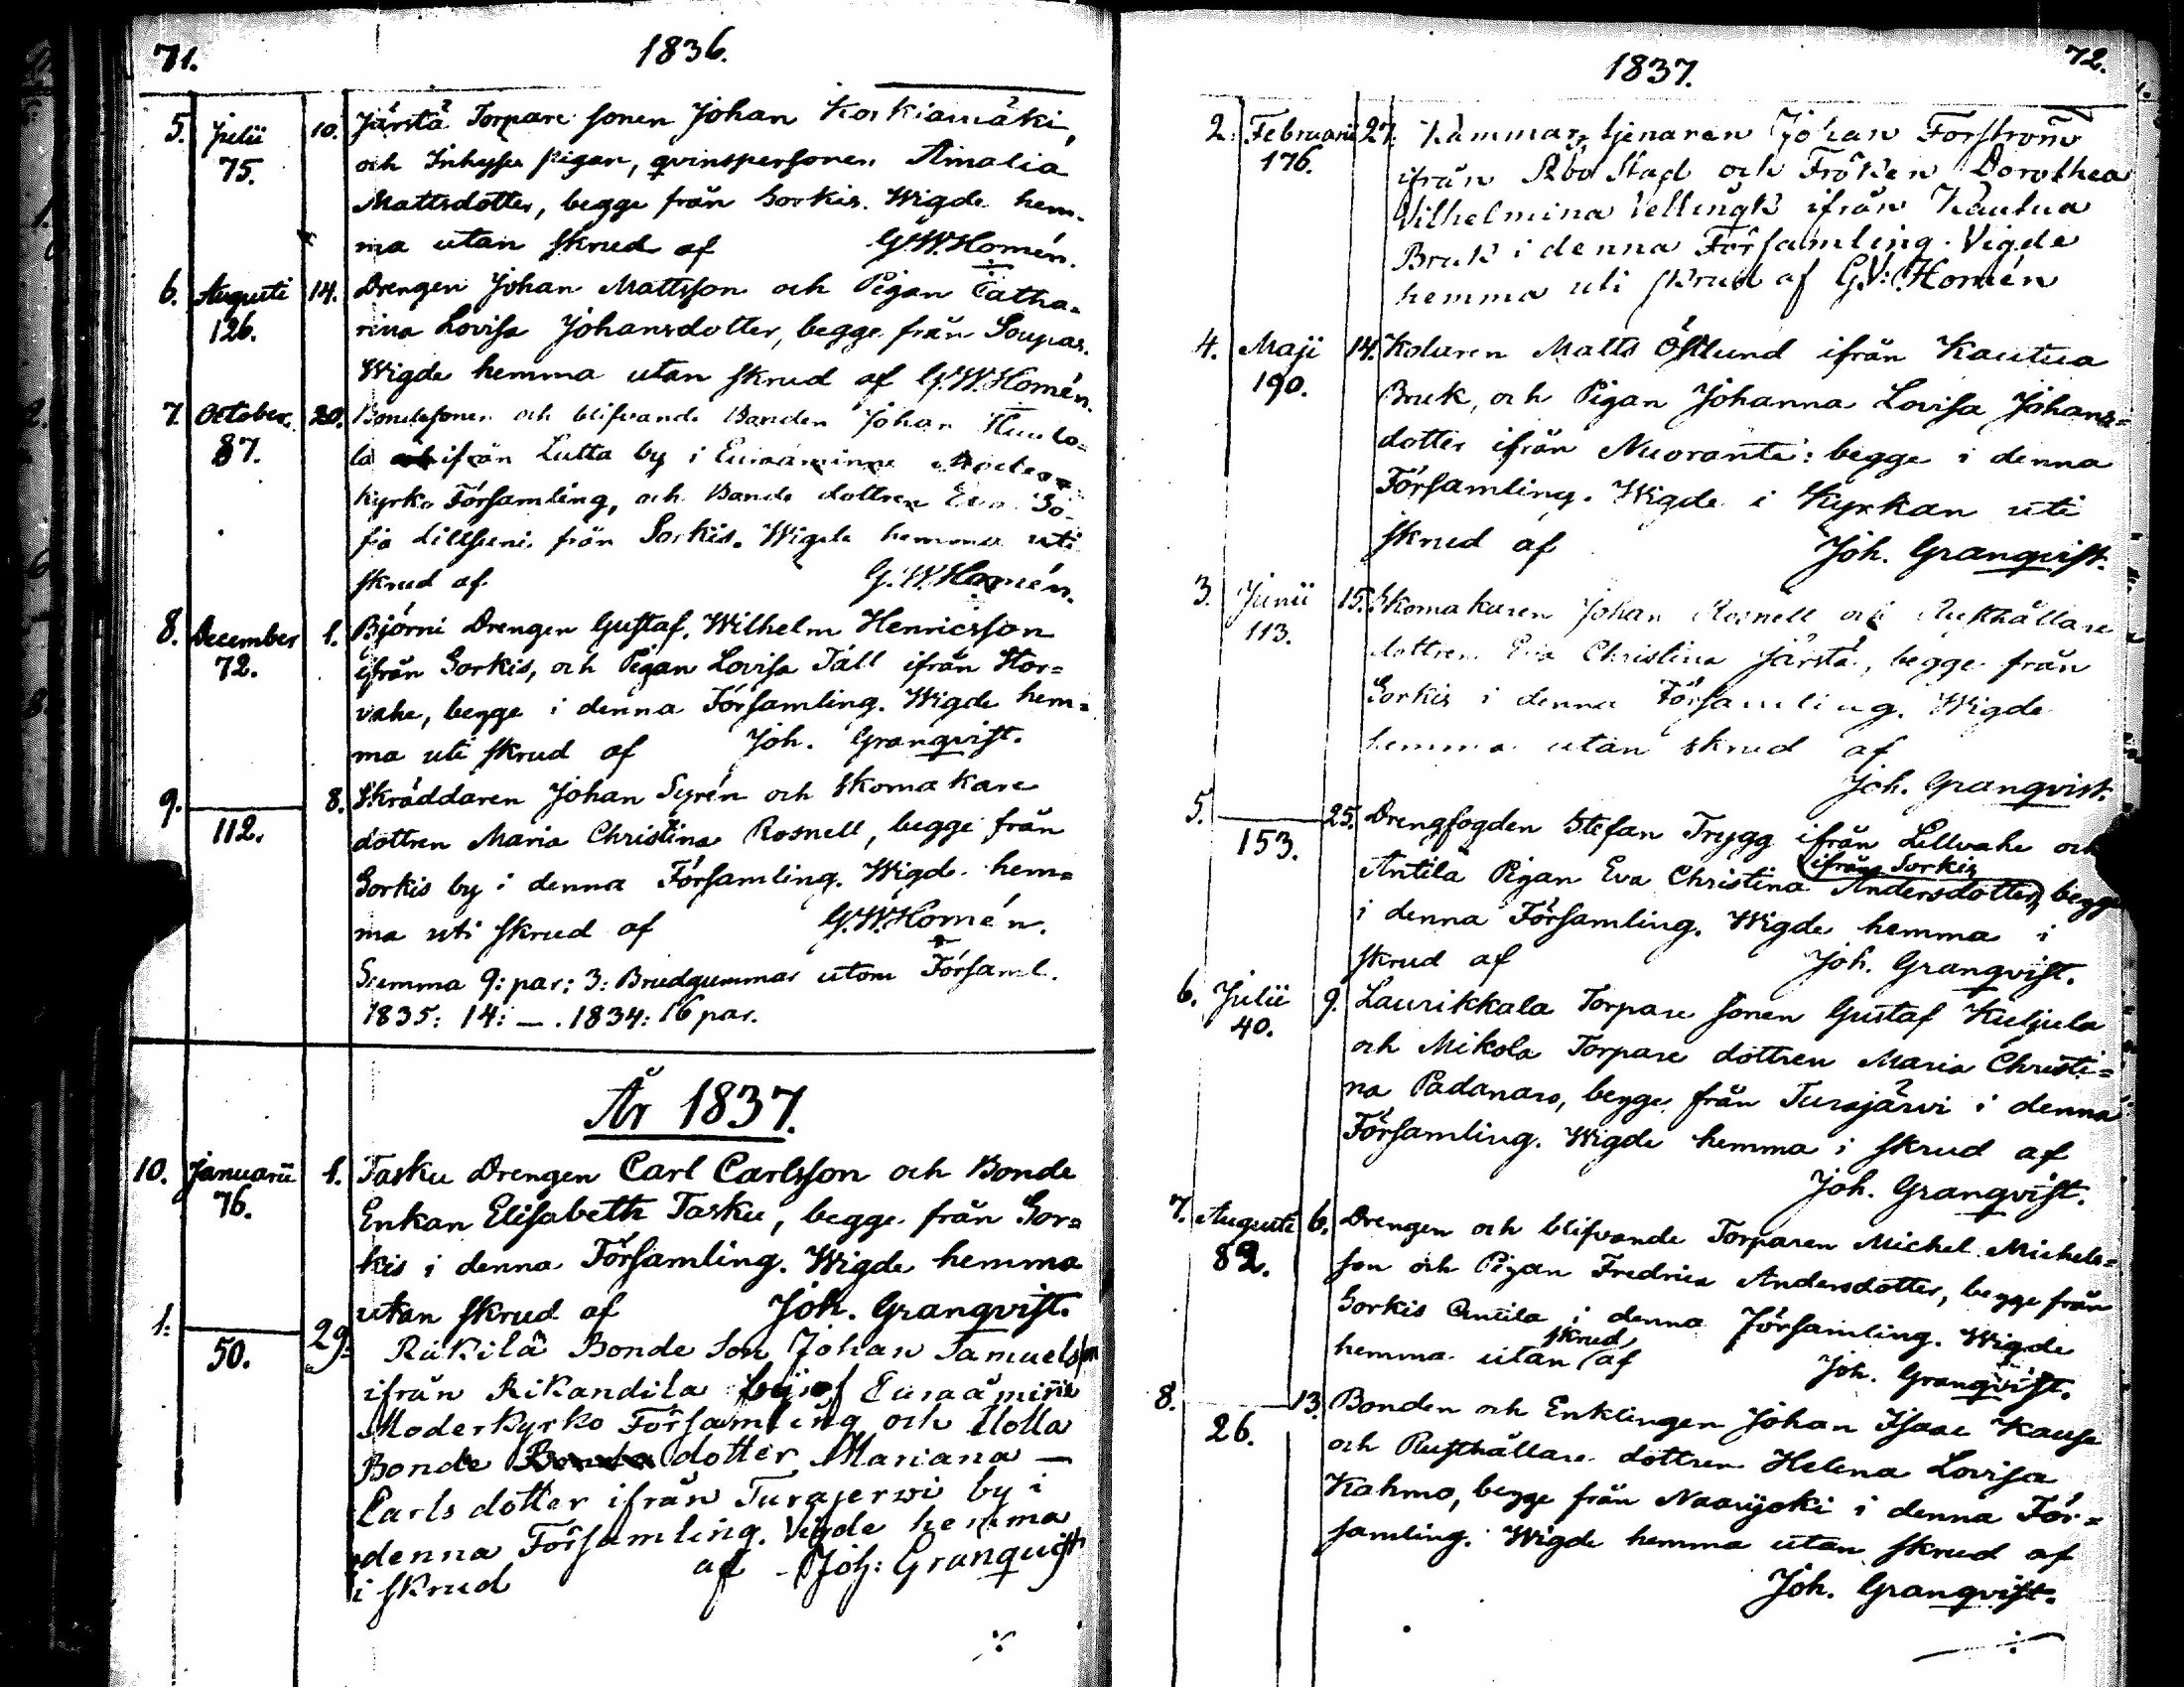 71. 1836.
5. Julii 10. Järstä Torpare sonen Johan Korkiamäki,
75. och Inhyses pigan, qvinspersonen Amalia
Mattsdotter, begge från Sorkis. Wigde hem-
ma utan skrud af G.W.Homén.
6. Augusti 14. Drengen Johan Mattsson och Pigan Catha-
126. rina Lovisa Johansdotter, begge från Soupas.
Wigde hemma utan skrud af G.W.Homén.
7. October. 20. Bondesonen och blifvande Bonden Johan
87. la ifrån Lutta by i Euraåminne Moder=
kyrko Församling, och Bonde dottren Eva So-
fia från Sorkis. Wigde hemma uti
skrud af G.W.Homén.
8. December 1. Björni Drengen Gustaf Wilhelm Henricsson
72. ifrån Sorkis, och Pigan Lovisa Täll ifrån Stor=
vahe, begge i denna Församling. Wigde hem=
ma uti skrud af Joh. Granqvist.
9. 8. Skräddaren Johan Syrén och Skomakare
112. dottren Maria Christina Rosnell, begge från
Sorkis by i denna Församling. Wigde hem=
ma uti skrud af G.W.Homén.
Summa 9: par; 3: Brudgummar utom Församl.
1835: 14: —. 1834: 16 par.
År 1837.
10. Januarii 1. Tasku Drengen Carl Carlsson och Bonde
76. Enkan Elisabeth Tasku, begge från Sor=
kis i denna Församling. Wigde hemma
utan skrud af Joh. Granqvist.
1. 29. Rikilä Bonde Son Johan Samuelsson
50. ifrån Rikandila by af Euraåminne
Moderkyrko Församling och Uolla
Bonde dotter Mariana —
Carls dotter ifrån Turajerwi by i
denna Församling. Vigde hemma
i skrud af Joh: Granquist
72. 1837.
2. Februarii 27. Kammar tjenaren Johan Forström
176. ifrån Åbo Stad och Fröken Dorothea
Vilhelmina Vellingk ifrån Kautua
Bruk i denna Församling. Vigde
hemma uti skrud af G.V: Homén
4. Maji 14. Kolaren Matts Östlund ifrån Kautua
190. Bruk, och Pigan Johanna Lovisa Johans=
dotter ifrån Nuoranti: begge i denna
Församling. Wigde i Kyrkan uti
skrud af Joh. Granqvist.
3. Junii 15. Skomakaren Johan Rosnell och Rusthållare
113. dottren Eva Christina Järstä, begge från
Sorkis i denna Församling. Wigde
hemma utan skrud af
Joh. Granqvist.
5. 25. Drengfogden Stefan Trygg ifrån Lillvahe och
ifrån Sorkis
153. Antila Pigan Eva Christina Andersdotter, begge
i denna Församling. Wigde hemma i
skrud af Joh. Granqvist.
6. Julii 9. Laurikkala Torpare sonen Gustaf Kuljula
40. och Mikola Torpare dottren Maria Christi=
na Padanaro, begge från Turajärvi i denna
Församling. Wigde hemma i skrud af
Joh. Granqvist.
7. Augusti 6. Drengen och blifvande Torparen Michel Michels=
82. son och Pigan Fredrica Andersdotter, begge från
Sorkis Antila i denna Församling. Wigde
skrud
hemma utan af Joh. Granqvist.
8. 13. Bonden och Enklingen Johan Isaac Kausa
26. och Rusthållare dottren Helena Lovisa
Kahmo, begge från Naarjoki i denna För=
samling. Wigde hemma utan skrud af
Joh. Granqvist.